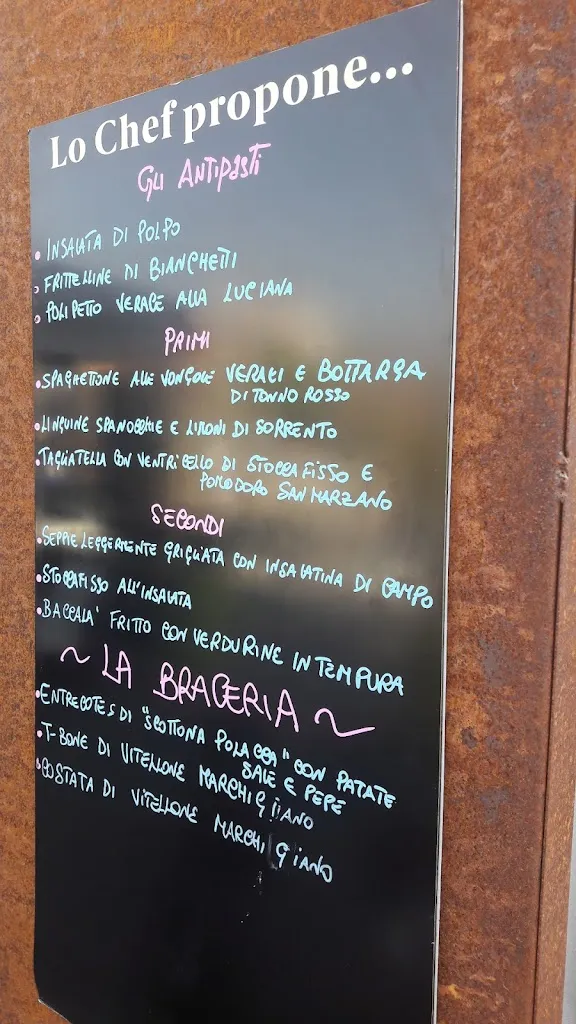 Lo Chef propone...
GLI ANTIPASTI
• INSALATA DI POLPO
• FRITTELLINE DI BIANCHETTI
• POLIPETTO VERACE ALLA LUCIANA
PRIMI
• SPAGHETTONE ALLE VONGOLE VERACI E BOTTARGA
DI TONNO ROSSO
• LINGUINE SPANOCCHIE E LIMONI DI SORRENTO
• TAGLIATELLA CON VENTRICELLO DI STOCCAFISSO E
POMODORO SAN MARZANO
SECONDI
• SEPPIE LEGGERMENTE GRIGLIATA CON INSALATINA DI CAMPO
• STOCCAFISSO ALL'INSALATA
• BACCALA' FRITTO CON VERDURINE IN TEMPURA
~ LA BRACERIA ~
• ENTRECOTES DI "SCOTTONA POLACCA" CON PATATE
SALE E PEPE
• T-BONE DI VITELLONE MARCHIGIANO
• COSTATA DI VITELLONE MARCHIGIANO